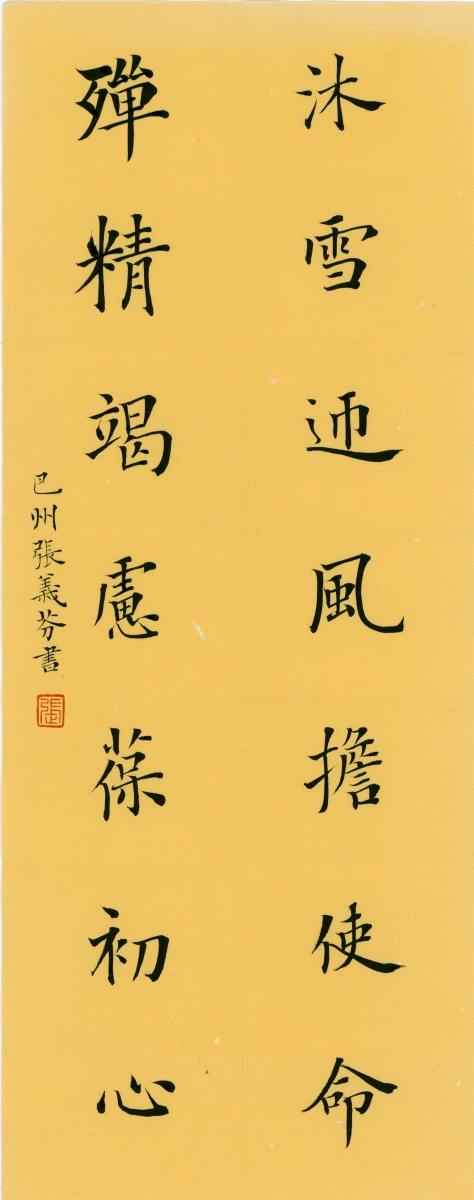 沐雪迊風擔使命
殫精竭慮葆初心
巴州張義芬書
張